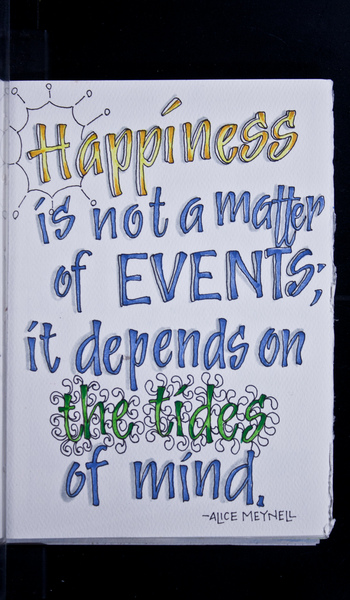 Happiness
is not a matter
of EVENTS;
it depends on
the tides
of mind.
-ALICE MEYNELL